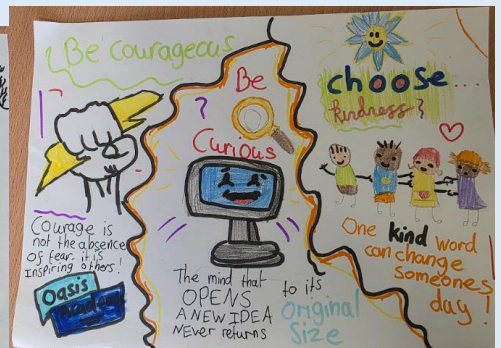 Be courageous
Courage is
not the absence
of fear. it is
Inspiring others!
Oasis
Academy
Be
?
Curious
The mind that
OPENS
A NEW IDEA
NEVER returns
to its
Original
Size
choose...
kindness?
One kind word
can change
someones
day!